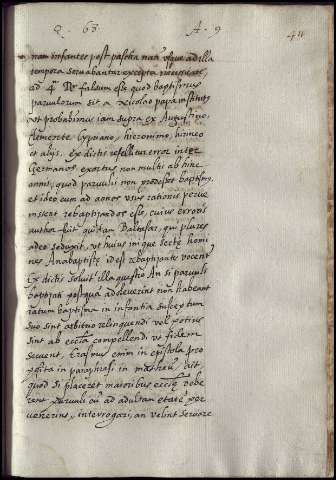 Q. 68. A. 9 44
nam infantes post pascha nati usque ad illa
tempora servabantur excepta necessitate,
ad 4ᵐ Rᵒ falsum esse quod baptismus
parvulorum sit a nicolao papa institutus
ut probabimus iam supra ex Augustino,
Clemente, Cypriano, hieronimo, hireneo
et alijs. Ex dictis refellitur error inter
Germanos exortus non multis ab hinc
annis, quod parvuli non prodesset baptismus,
et ideo cum ad annos usus rationis perve
nissent rebaptizandos esse, cuius erroris
author fuit quidam Baltasar, qui plures
adeo seduxit, ut huius inique secte homi
nes Anabaptiste id est rebaptizantes vocentur
Ex dictis solvitur illa questio An si parvuli
baptizati postquam adoleverint non habeant
ratum baptisma in infantia susceptum
suo sint arbitrio relinquendi vel potius
sint ab ecclesia compellendi ut fidem
servent, Erasmus enim in epistola pre
posita in paraphrasi in matheum ait,
quod si placeret maioribus ecclesie debe
rent parvuli cum ad adultam etatem per
venerint, interrogari, an velint servare